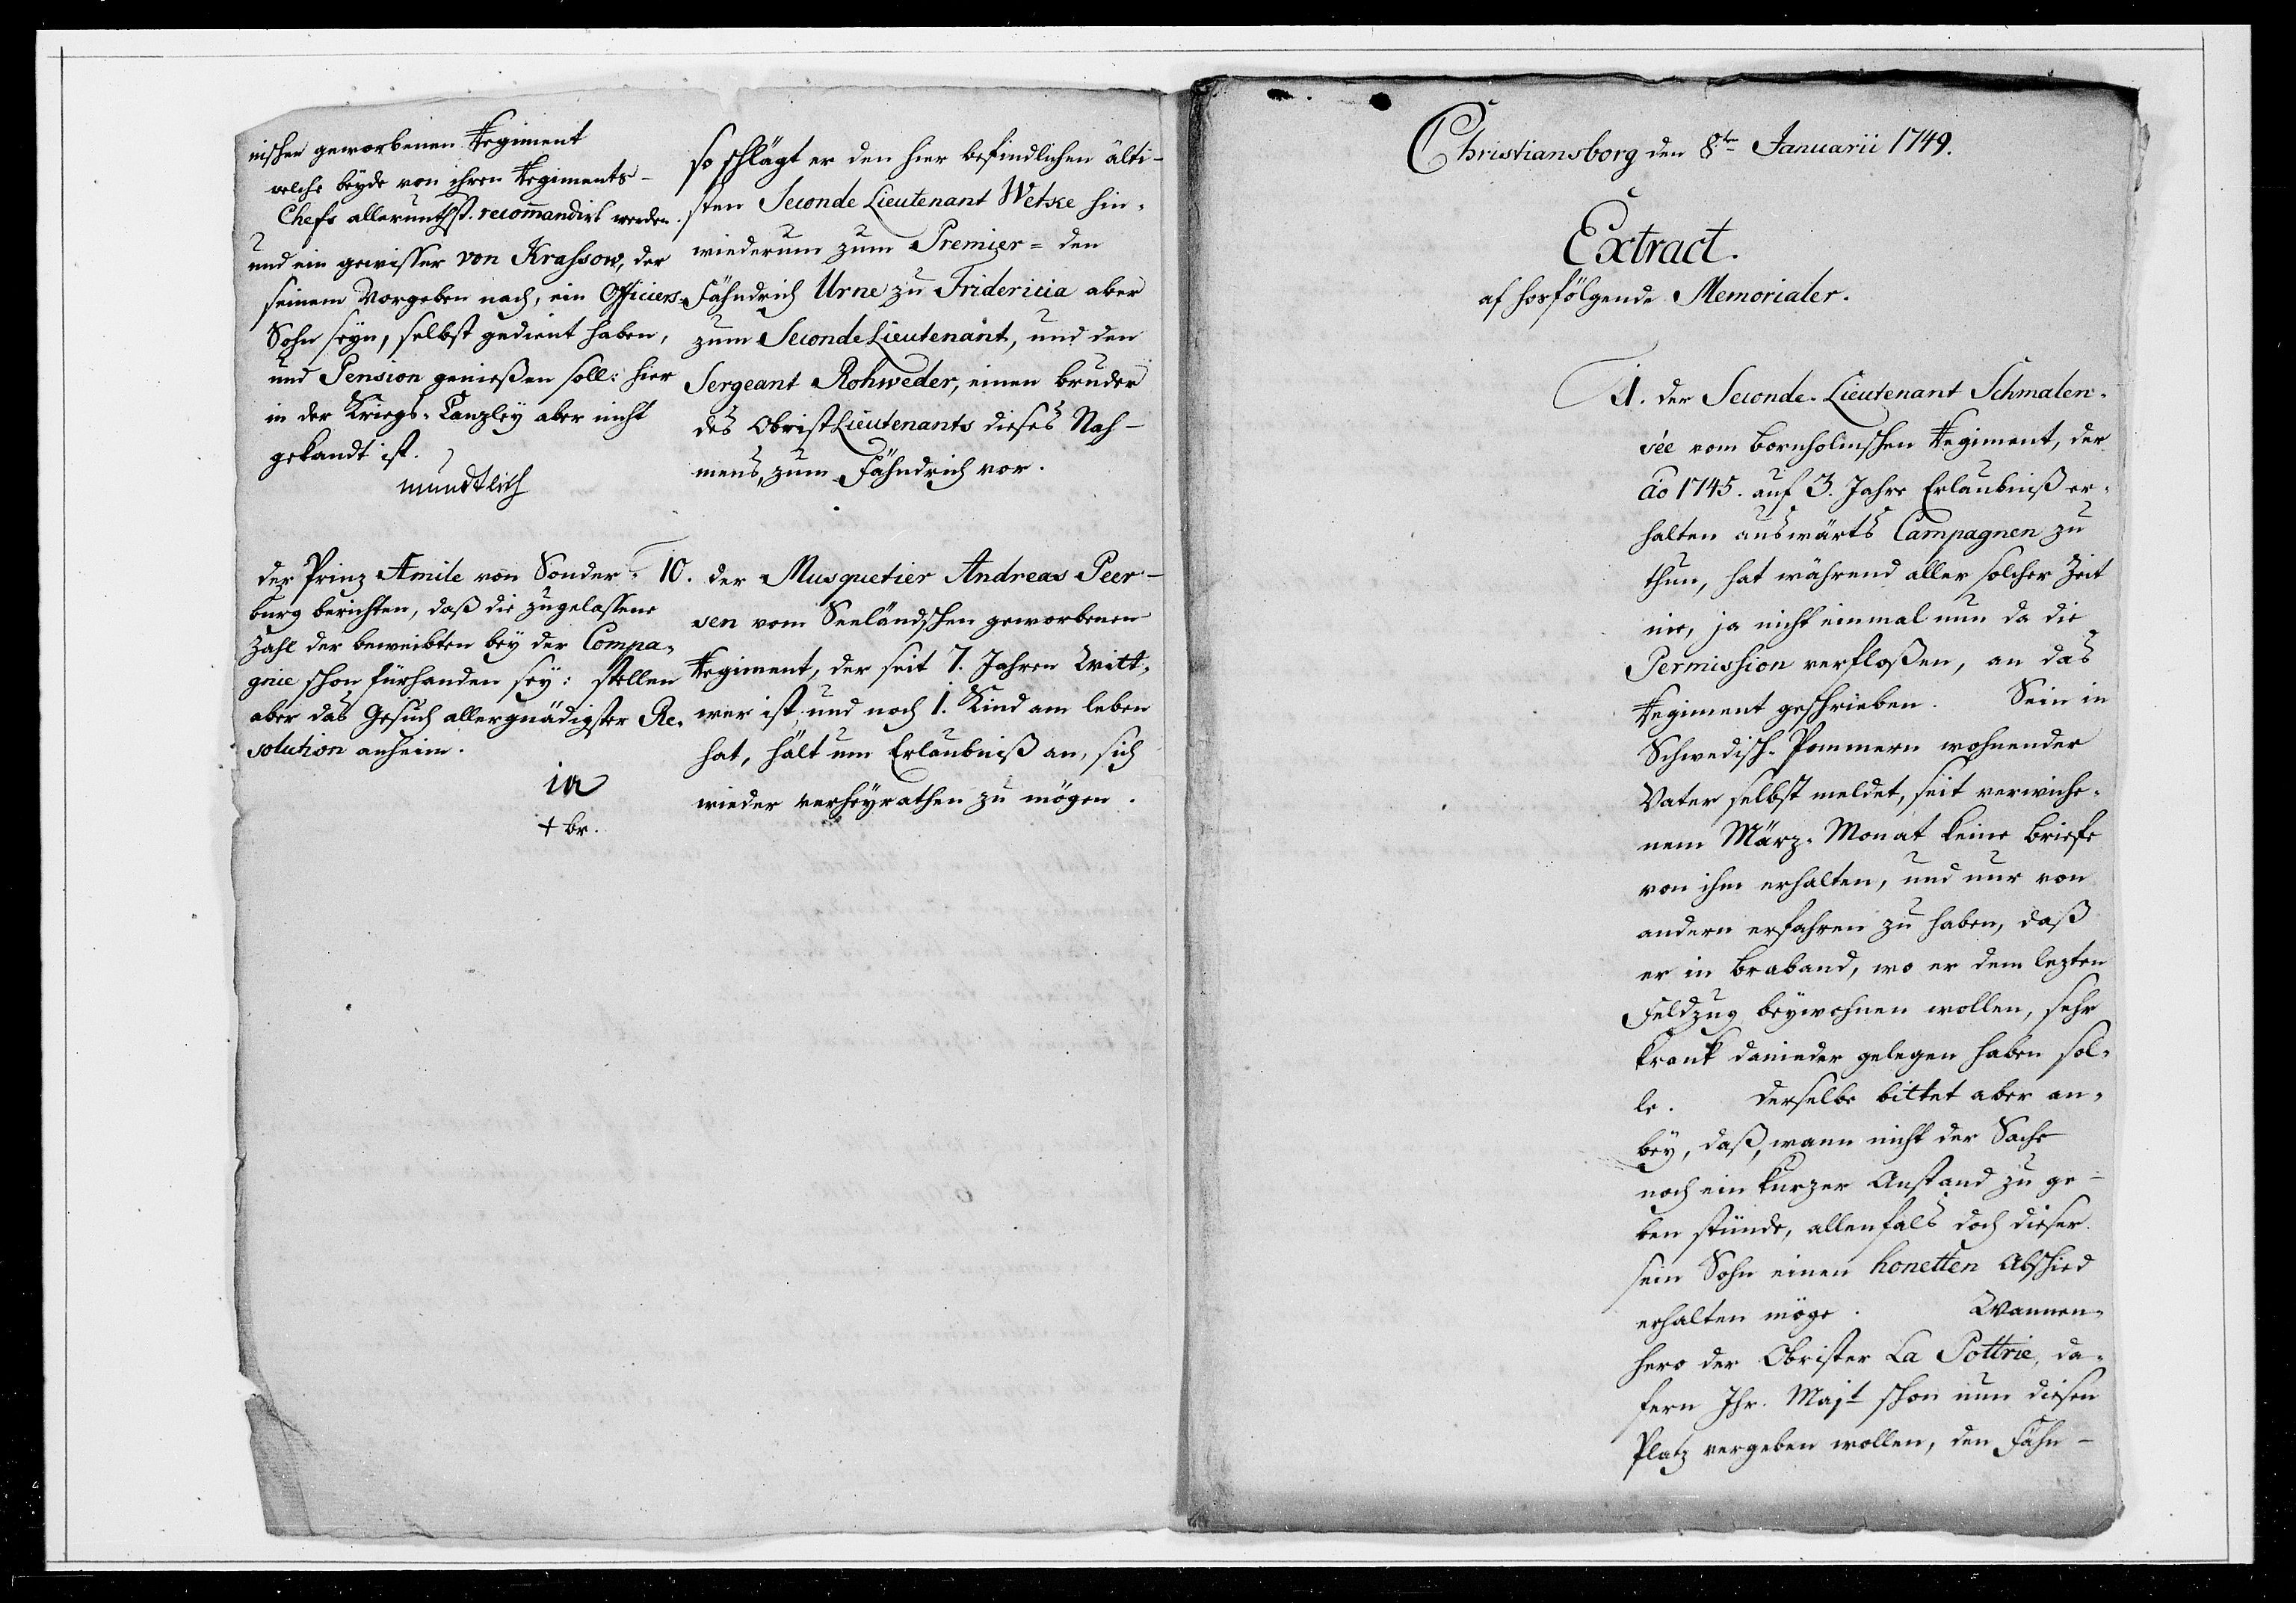 nischen geworbenen Regiment
welche beyde von ihren Regiments-
Chefs allerunthst. recom̄andirt werden.
und ein gewisser von Krassow, der
seinem Vorgeben nach, ein Officiers-
Sohn seyn, selbst gedient haben,
und Pension genießen soll: hier
in der Kriegs-Canzley aber nicht
gekandt ist.
mundtlich
der Prinz Emile von Sonder-
burg berichten, daß die zugelassene
Zahl der beweibten bey der Compa-
gnie schon fürhanden sey: stellen
aber das Gesuch allergnädigster Re-
solution anheim.
ia
+ br.
so schlägt er den hier befindlichen älti-
sten Seconde Lieutenant Wetske hin-
wiederum zum Premier= den
Fähndrich Urne zu Fridericia aber
zum Seconde Lieutenant, und den
Sergeant Rohweder, einen Bruder
des Obrist Lieutenants dieses Nah-
mens, zum Fähndrich vor.
10. der Musquetier Andreas Peer-
sen vom Seeländschen geworbenen
Regiment, der seit 7. Jahren Witt-
wer ist, und noch 1. Kind am leben
hat, hält um Erlaubniß an, sich
wieder verheyrathen zu mögen.
Christiansborg den 8ten Januarii 1749.
Extract.
af hosfölgende Memorialer.
1. der Seconde-Lieutenant Schmalen-
sée vom Bornholmschen Regiment, der
ao 1745. auf 3. Jahre Erlaubniß er-
halten auswärts Campagnen zu
thun, hat während aller solcher Zeit
nie, ja nicht einmal nun da die
Permission verfloßen, an das
Regiment geschrieben. Sein in
Schwedisch-Pommern wohnender
Vater selbst meldet, seit verwiche-
nem März-Monat keine Briefe
von ihm erhalten, und nur von
andern erfahren zu haben, daß
er in Braband, wo er dem lezten
Feldzug beywohnen wollen, sehr
krank danieder gelegen haben sol-
le. Derselbe bittet aber an-
bey, daß, wann nicht der Sache
noch ein kurzer Anstand zu ge-
ben stünde, allenfals doch dieser
sein Sohn einen honetten Abschied
erhalten möge. Wannen-
hero der Obrister La Pottrie, da-
fern Ihr. Majt schon nun diesen
Platz vergeben wollen, den Fähn-